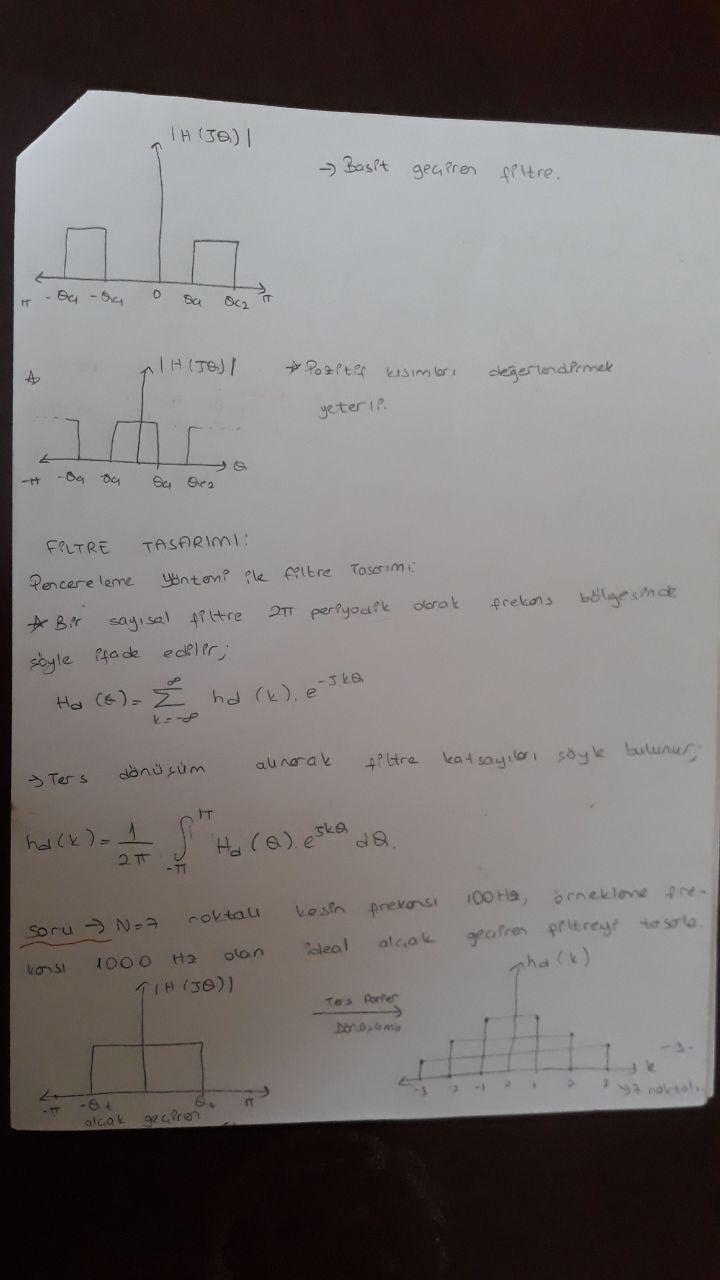 |H(Jθ)|
→ Basit geçiren filtre.
π -θc1 -θc1 0 θc1 θc2 π
|H(Jθ)|
* Pozitif kısımları değerlendirmek
yeterli.
-π -θc1 -θc1 θc1 θc2 θ
FİLTRE TASARIMI:
Pencereleme yöntemi ile filtre Tasarımı:
* Bir sayısal filtre 2π periyodik olarak frekans bölgesinde
şöyle ifade edilir;
Hd (θ) = ∑ k=-∞ ∞ hd (k). e^-Jkθ
→ Ters dönüşüm alınarak filtre katsayıları şöyle bulunur;
hd(k) = 1/2π ∫ -π π Hd (θ). e^Jkθ dθ.
Soru → N=7 noktalı kesin frekansı 100Hz, örnekleme fre-
kansı 1000 Hz olan ideal alçak geçiren filtreyi tasarla.
|H(Jθ)|
Ters Forier
Dönüşümü
hd(k)
-π -θ θ π
-3 -2 -1 0 1 2 3 k
→7 noktalı.
alçak geçiren